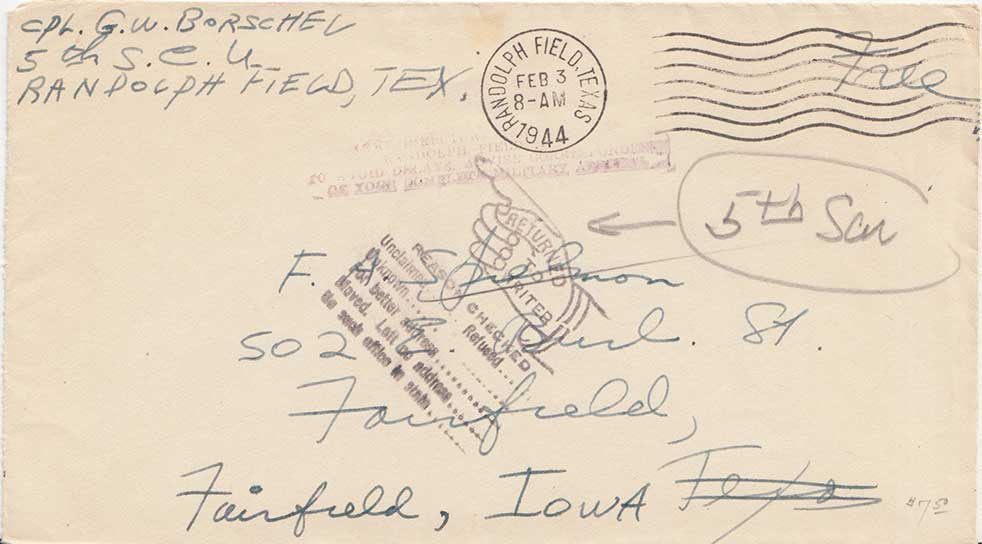 CPL. G.W. BORSCHEL
5th S.C.U.
RANDOLPH FIELD, TEX.
RANDOLPH FIELD, TEXAS
FEB 3
8-AM
1944
Free
RANDOLPH FIELD
TO AVOID DELAYS ADVISE CORRESPONDENTS
OF YOUR COMPLETE MILITARY ADDRESS
5th Scu
RETURNED
TO
WRITER
REASON CHECKED
Unclaimed..... Refused....
Unknown.....
For better address......
Moved. Left no address.....
No such office in state......
F. A.
502 St.
Fairfield,
Fairfield, IOWA Texas
$7.50